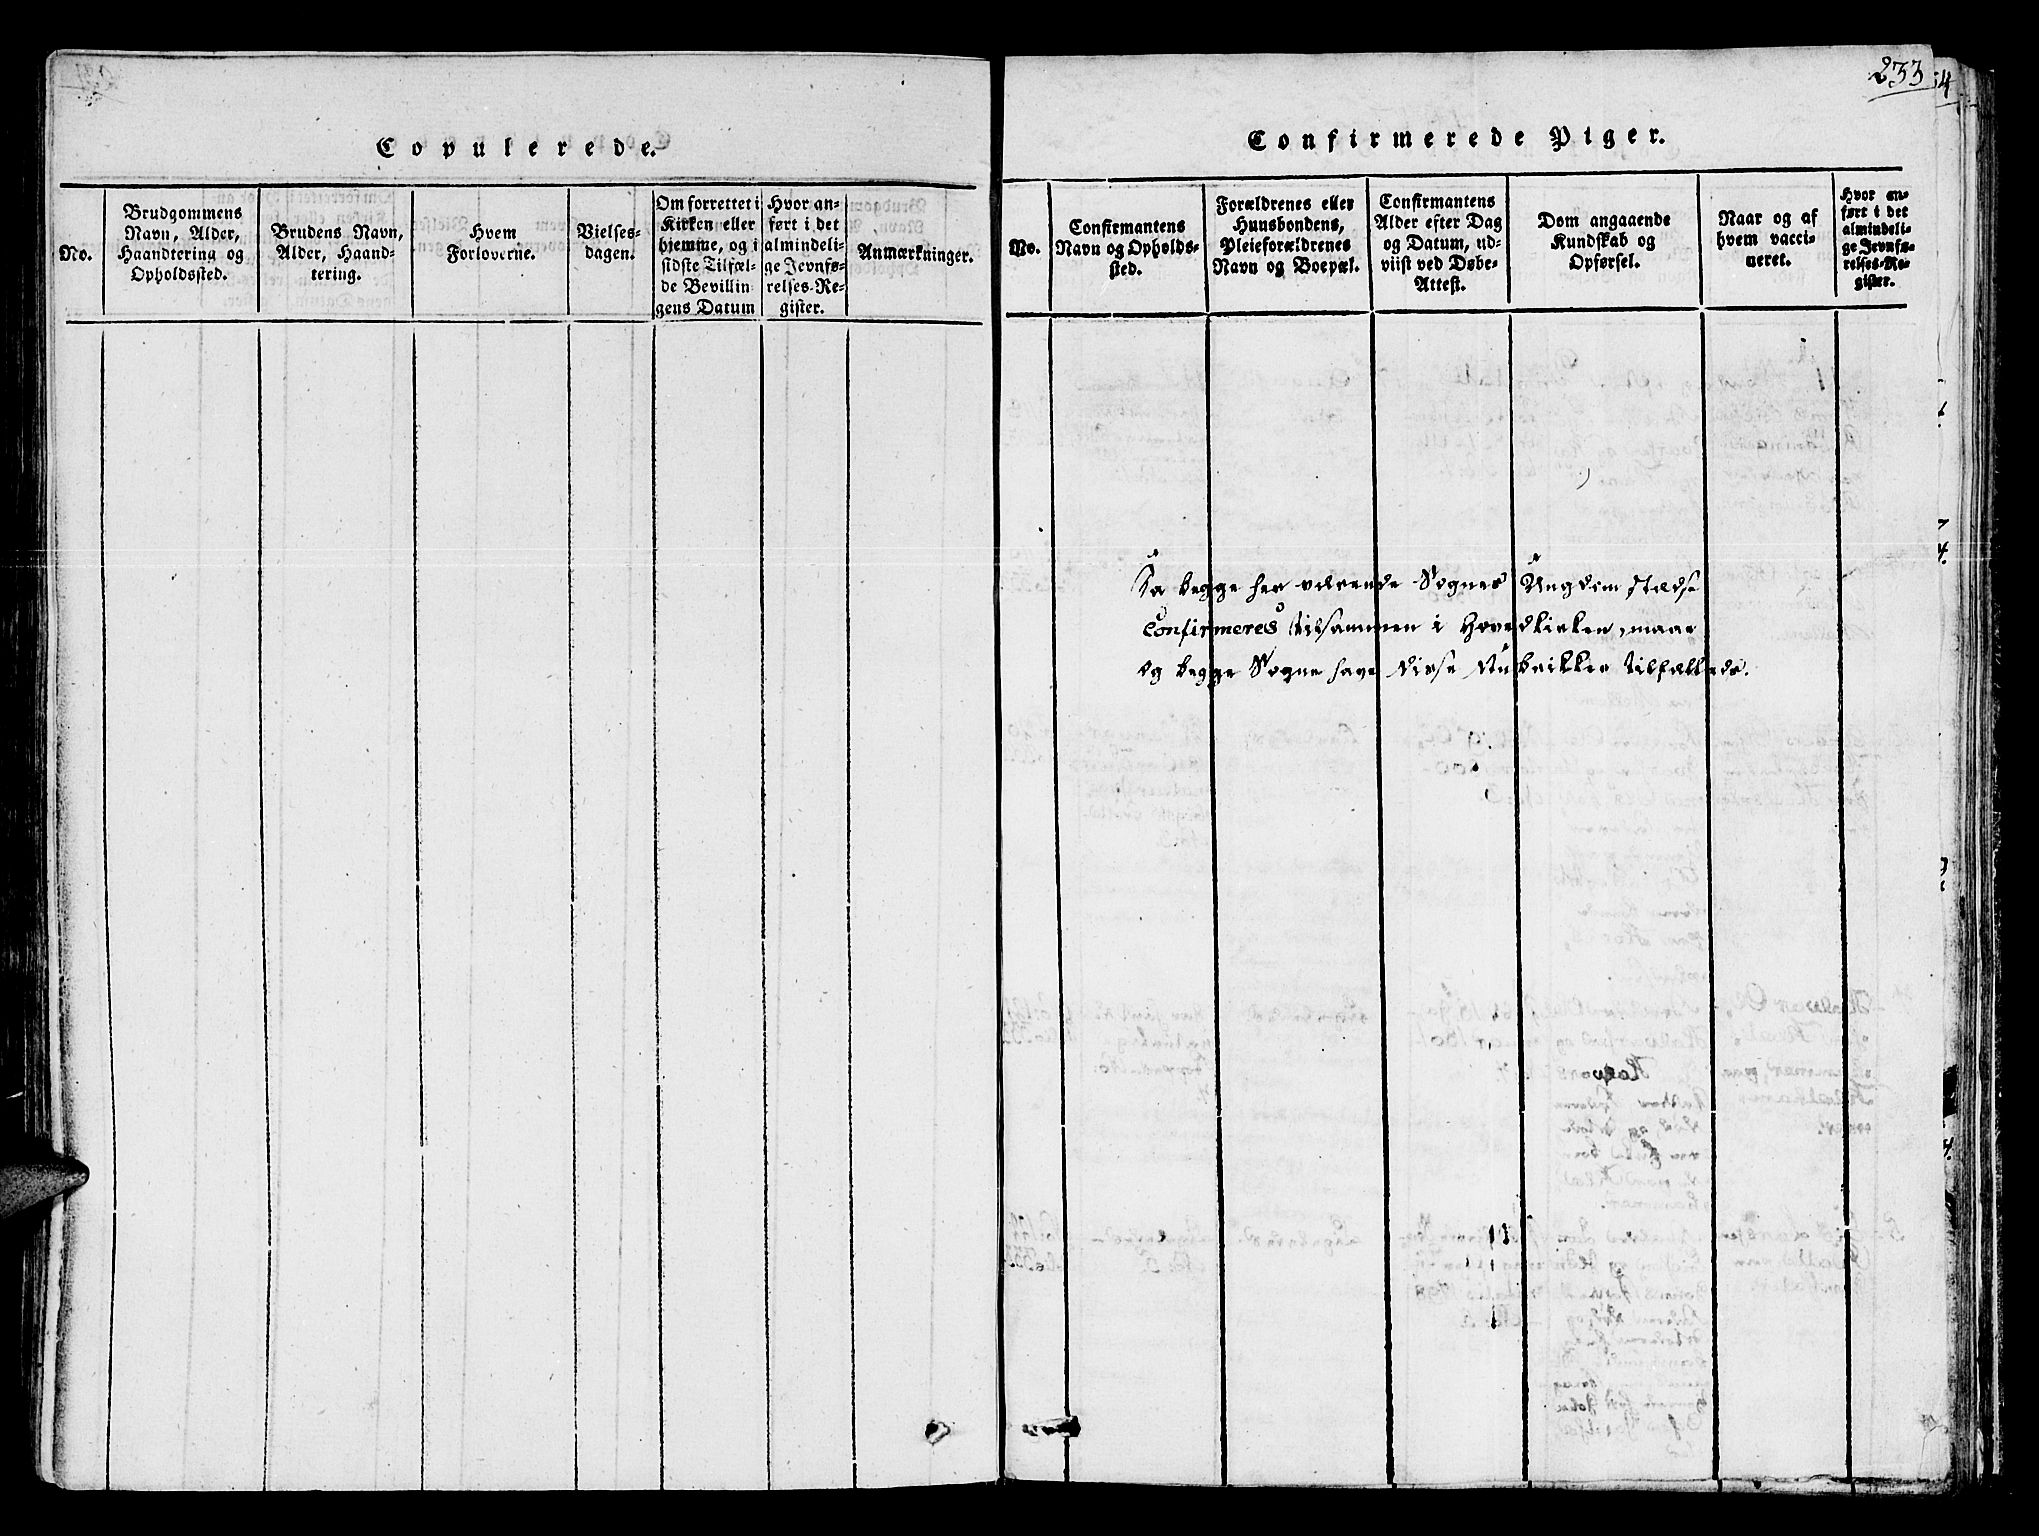 Copulerede.
No.
Brudgommens
Navn, Alder,
Haandtering og
Opholdssted.
Brudens Navn,
Alder, Haand-
tering.
Hvem
Forloverne.
Vielses-
dagen.
Om forrettet i
Kirken eller
hjemme, og i
sidste Tilfæl-
de Bevillin-
gens Datum
Hvor an-
ført i det
almindeli-
ge Jevnfø-
relses-Re-
gister.
Anmærkninger.
233
4
Confirmerede Piger.
No.
Confirmantens
Navn og Opholds-
sted.
Forældrenes eller
Huusbondens,
Pleieforældrenes
Navn og Boepæl.
Confirmantens
Alder efter Dag
og Datum, ud-
viist ved Døbe-
Attest.
Dom angaaende
Kundskab og
Opførsel.
Naar og af
hvem vacci-
neret.
Hvor an-
ført i det
almindeli-
ge Jevnfø-
relses-Re-
gister.
Da begge her værende Sognes Ungdom stedse
Confirmeres tilsammen i Hovedkirken, maae
og begge Sogne have disse Rubrikker tilfælleds.